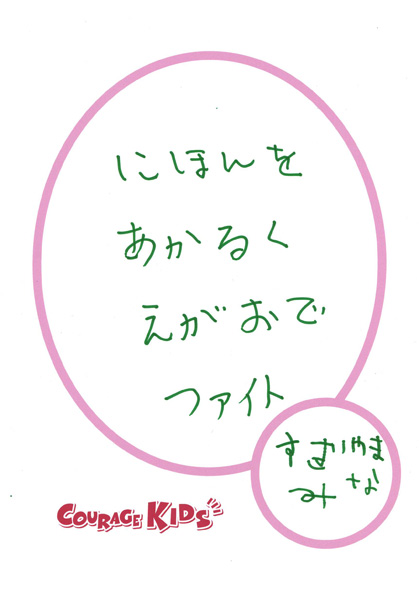 にほんを
あかるく
えがおで
ファイト
みな
COURAGE KIDS